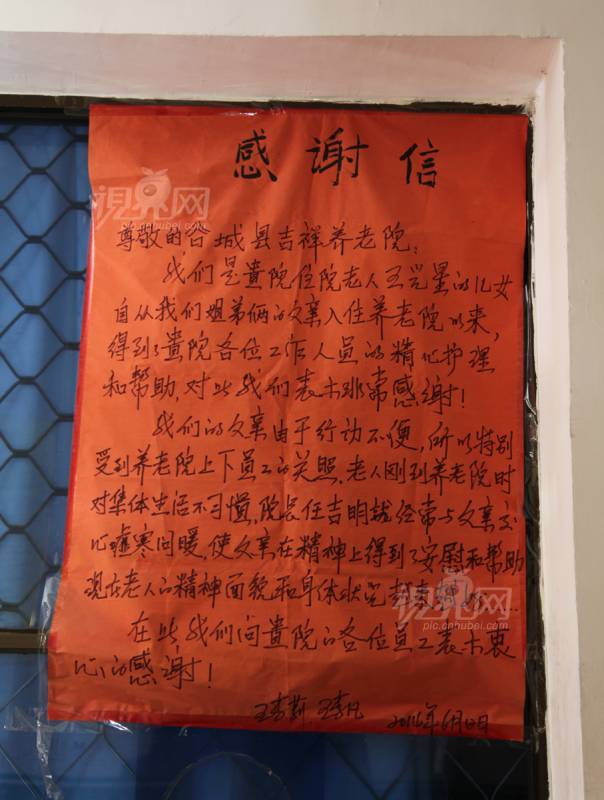 感谢信
尊敬的谷城县吉祥养老院:
我们是贵院住院老人王光星的儿女
自从我们姐弟俩的父亲入住养老院以来,
得到了贵院各位工作人员的精心护理
和帮助,对此我们表示非常感谢!
我们的父亲由于行动不便,所以特别
受到养老院上下员工的关照,老人刚到养老院时
对集体生活不习惯,院长任吉明就经常与父亲交
心嘘寒问暖,使父亲在精神上得到了安慰和帮助
现在老人的精神面貌和身体状况都
在此我们向贵院的各位员工表示衷
心的感谢!
王 王 2016年6月12日
視界网
pic.cnhubei.com
視界网
pic.cnhubei.com